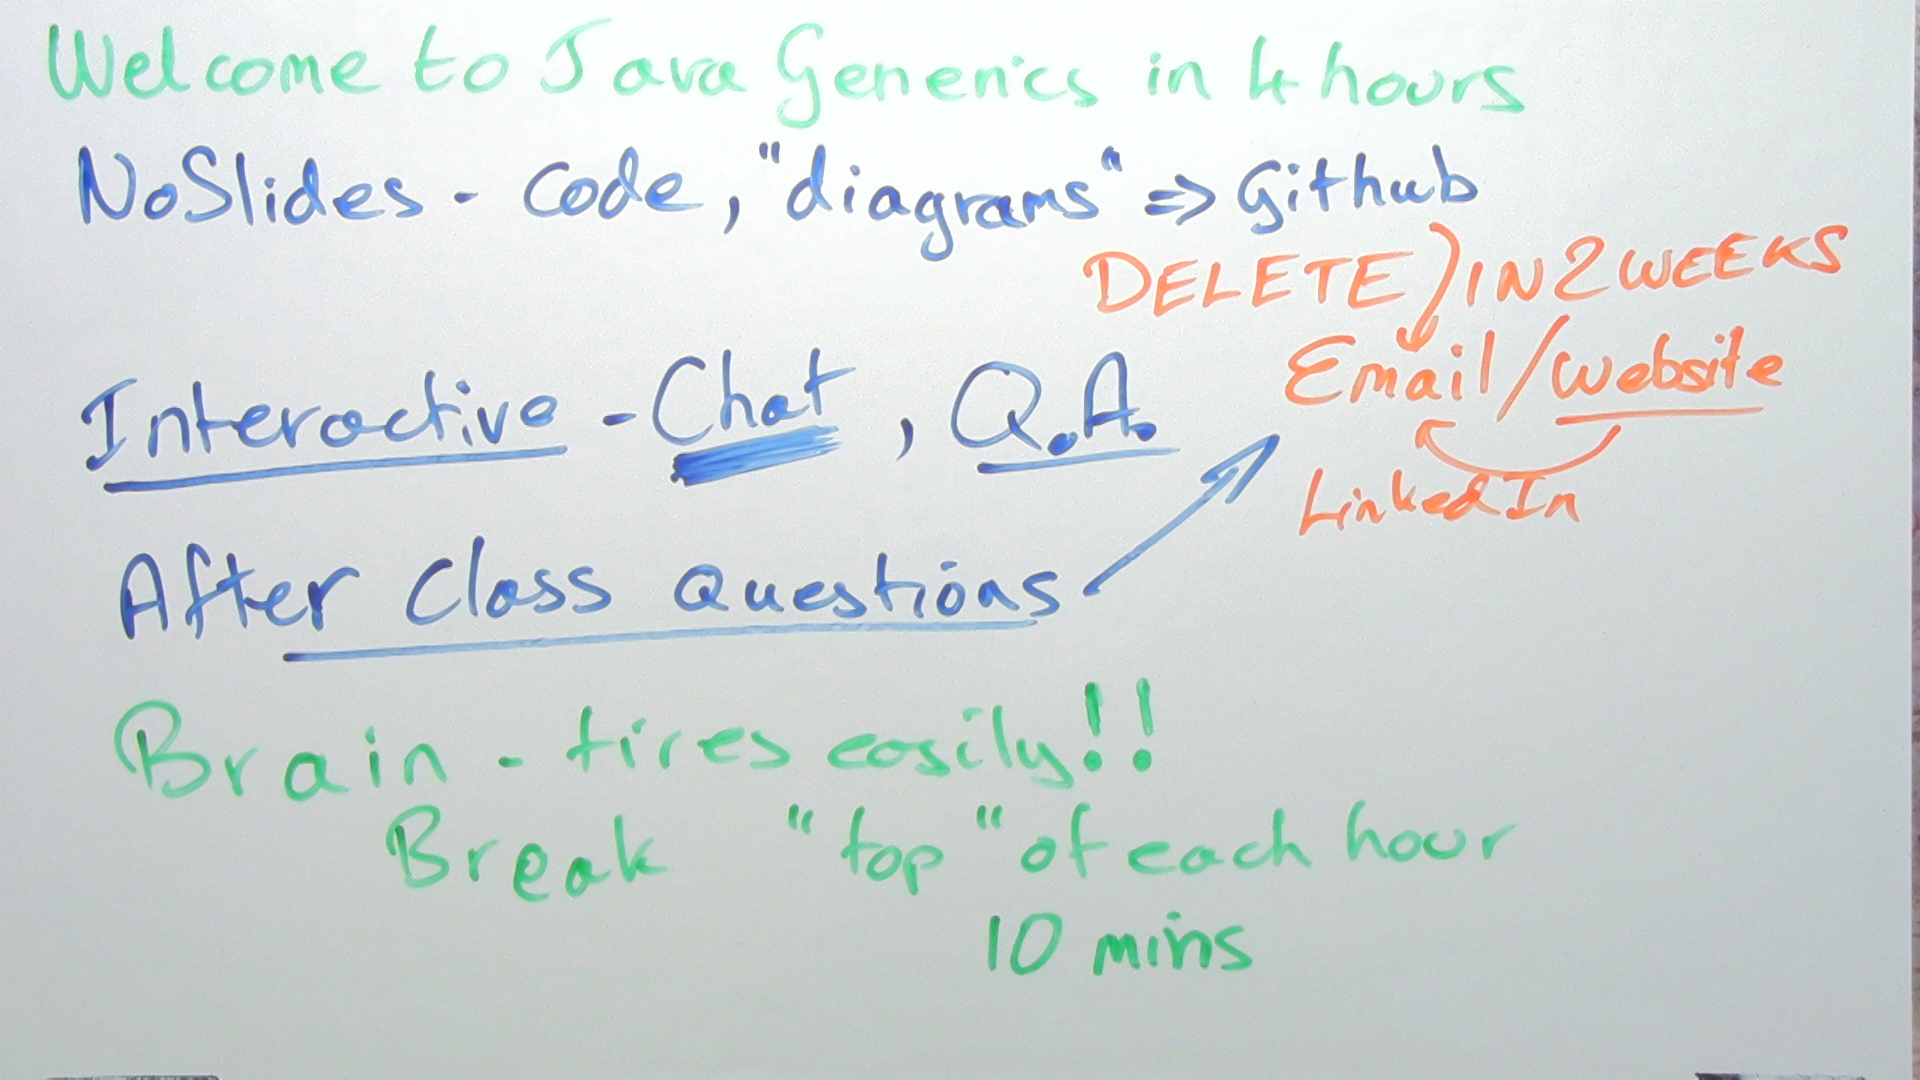 Welcome to Java Generics in 4 hours
NoSlides - Code, "diagrams" => Github
DELETE IN 2 WEEKS
Email/website
LinkedIn
Interactive - Chat, Q.A.
After Class Questions
Brain - tires easily!!
Break "top" of each hour
10 mins